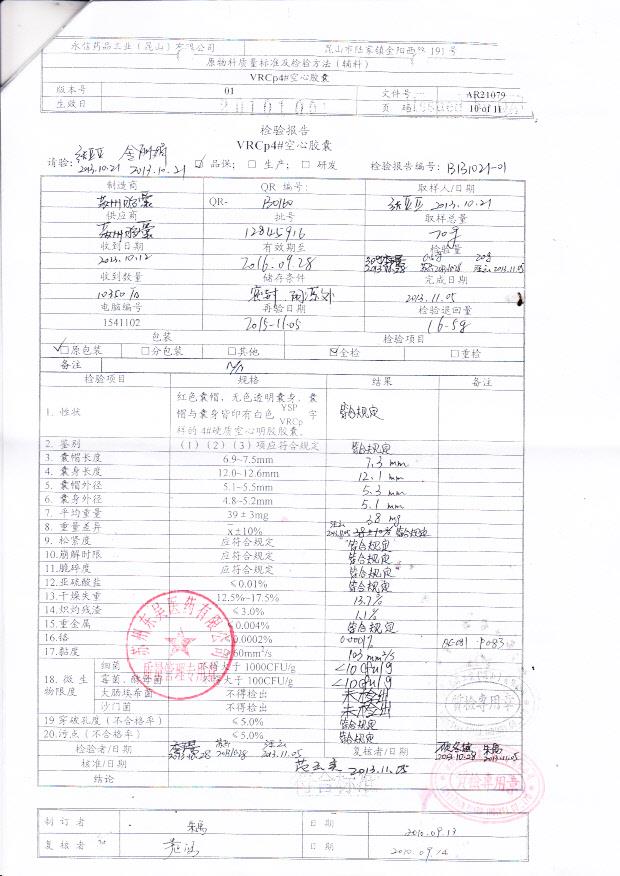 永信药品工业（昆山）有限公司 昆山市陆家镇金阳西路191号
原物料质量标准及检验方法（辅料）
VRCp4#空心胶囊
版本号 01 文件号 AR21079
生效日 20101001 页码 10 of 11
检验报告
VRCp4#空心胶囊
请验： 2013.10.21 2013.10.21 ☑ 品保； □ 生产； □ 研发 检验报告编号：B131021-01
制造商 QR 编号： 取样人/日期
苏州胶囊 QR- B0160 2013.10.21
供应商 批号 取样总量
苏州胶囊 12845916 70g
收到日期 有效期至 检验量
2013.10.12 2016.09.28
收到数量 储存条件 完成日期
10350 密封 2013.11.05
电脑编号 再验日期 检验退回量
1541102 2015.11.05 16.5g
包装 检验项目
☑原包装 □分包装 □其他 ☑全检 □重检
备注 N/A
检验项目 规格 结果 备注
1. 性状 红色囊帽，无色透明囊身，囊帽与囊身皆印有白色 YSP VRCp 字样的4#硬质空心明胶胶囊。 符合规定
2. 鉴别 （1）（2）（3）项应符合规定 符合规定
3. 囊帽长度 6.9~7.5mm 7.3 mm
4. 囊身长度 12.0~12.6mm 12.1 mm
5. 囊帽外径 5.1~5.5mm 5.3 mm
6. 囊身外径 4.8~5.2mm 5.1 mm
7. 平均重量 39±3mg 38 mg
8. 重量差异 x̄±10% 符合规定
9. 松紧度 应符合规定 符合规定
10.崩解时限 应符合规定 符合规定
11.脆碎度 应符合规定 符合规定
12.亚硫酸盐 ≤0.01% 符合规定
13.干燥失重 12.5%~17.5% 13.7%
14.炽灼残渣 ≤3.0% 1.1%
15.重金属 ≤0.004% 符合规定
16.铬 ≤0.0002% 0.0001%
17.黏度 60mm²/s 103 mm²/s
18. 微生物限度 细菌 不得大于1000CFU/g <10cfu/g
霉菌、酵母菌 不得大于100CFU/g <10cfu/g
大肠埃希菌 不得检出 未检出
沙门菌 不得检出 未检出
19 穿破孔度（不合格率） ≤5.0% 符合规定
20.污点（不合格率） ≤5.0% 符合规定
检验者/日期 2013.10.28 2013.10.28 2013.11.05 复核者/日期 2013.10.28 2013.11.05
核准/日期 2013.11.05
结论 符合标准
制订者 朱禹 日期 2010.09.13
复核者 日期 2010.09.14
苏州东吴医药有限公司
质量管理专用章
质检专用章
质检专用章